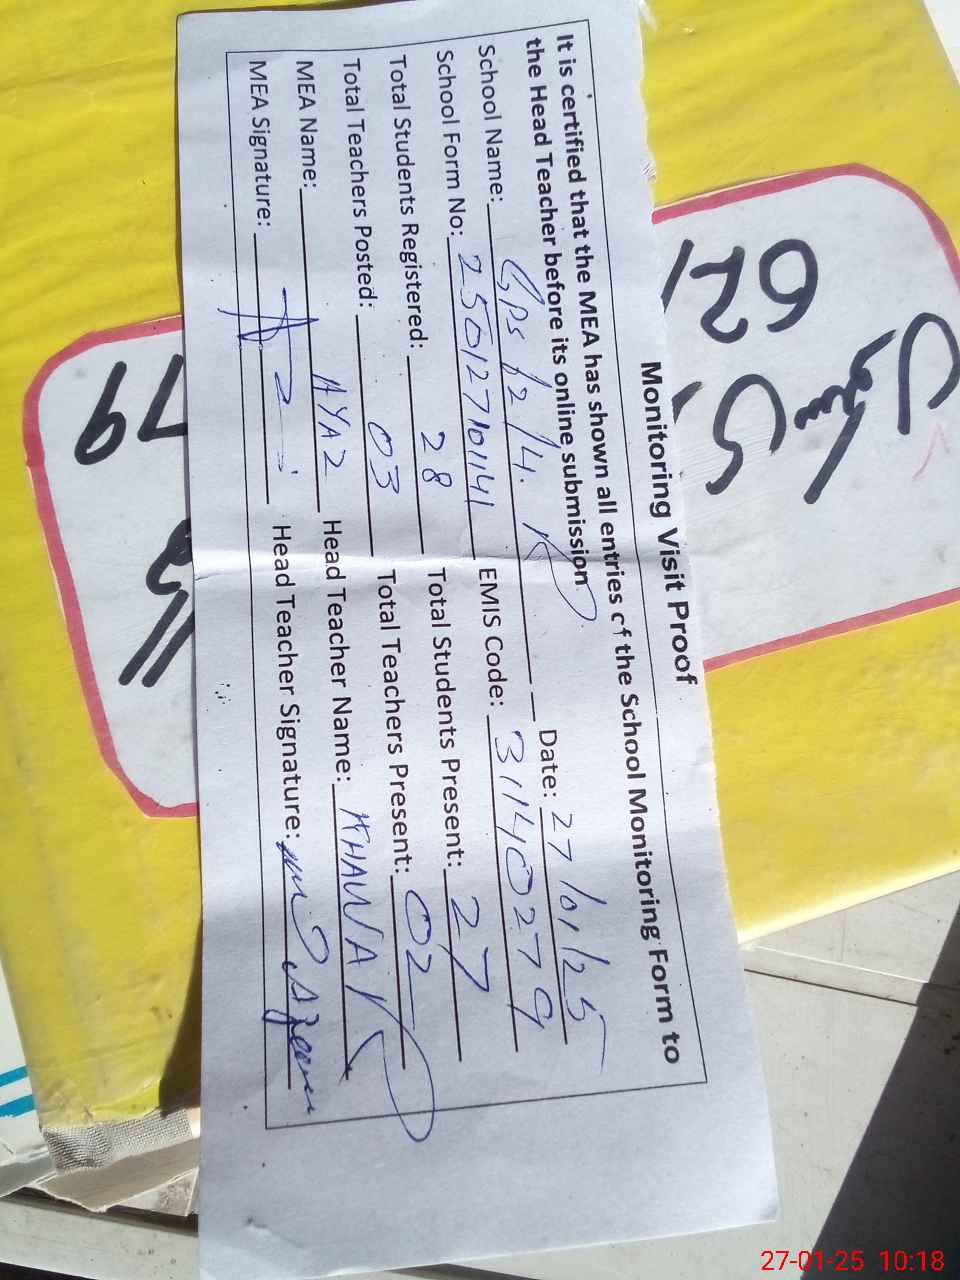 Monitoring Visit Proof
It is certified that the MEA has shown all entries of the School Monitoring Form to
the Head Teacher before its online submission
School Name: GPS 12/4.R Date: 27/01/25
School Form No: 250127101141 EMIS Code: 31140279
Total Students Registered: 28 Total Students Present: 27
Total Teachers Posted: 03 Total Teachers Present: 02
MEA Name: AYAZ Head Teacher Name: KHAWAR
MEA Signature: Head Teacher Signature:
79
27-01-25 10:18